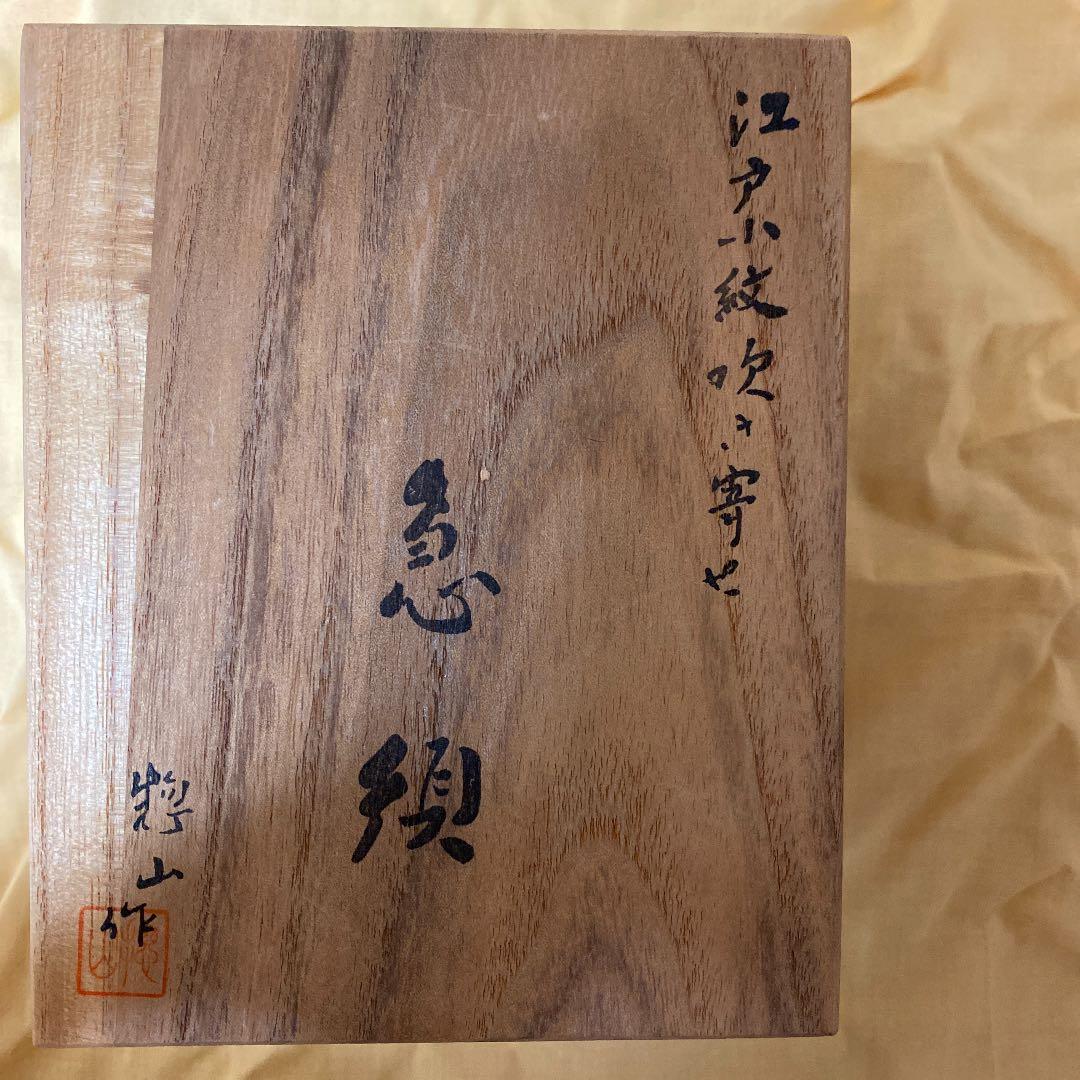 江戸小紋吹き寄せ
急須
山作